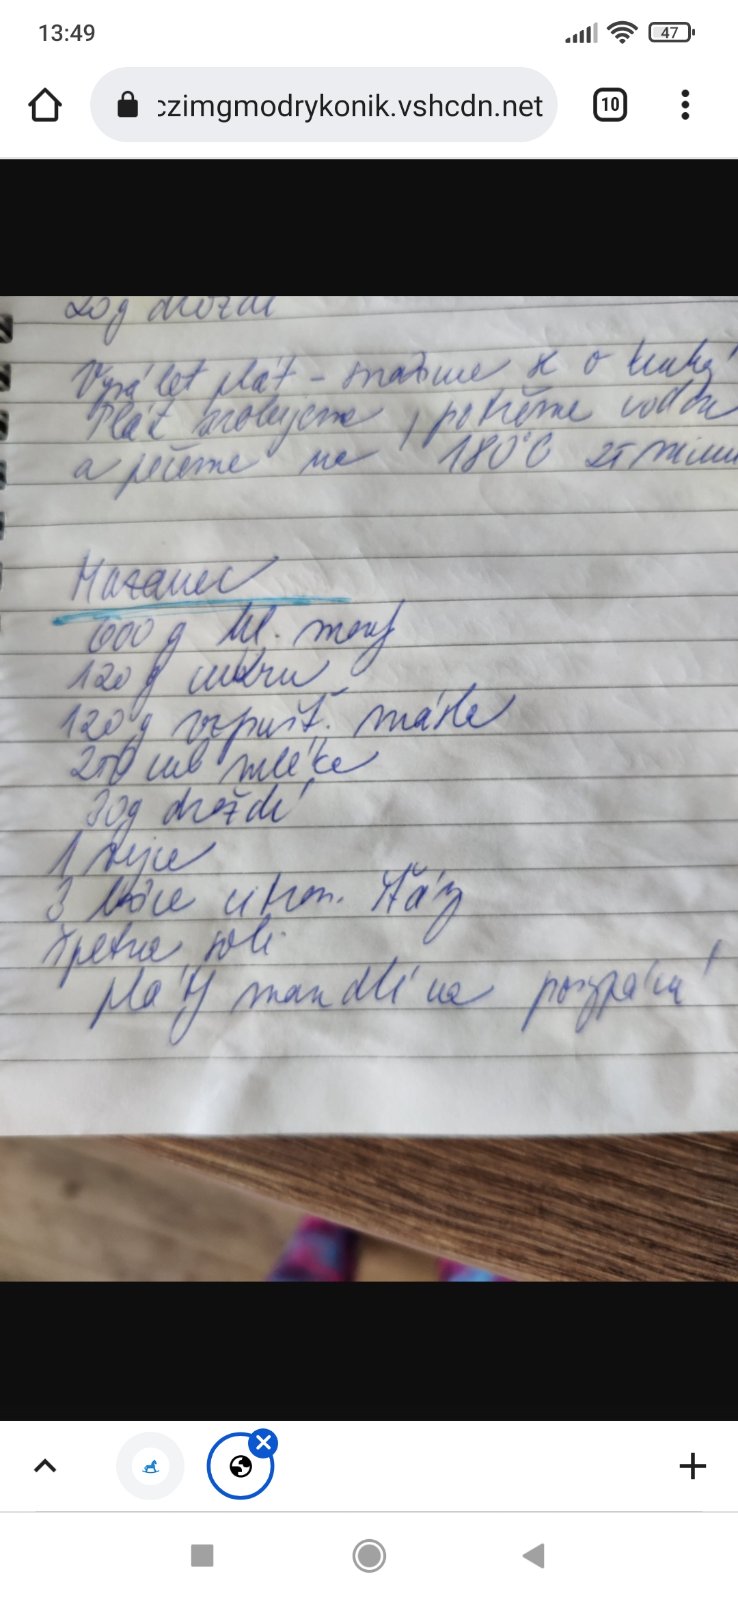 13:49
47
czimgmodrykonik.vshcdn.net
10
20g droždí
Vyválet plát - mažeme
Plát srolujeme, potřeme vodou
a pečeme na 180°C 25 minu
Mazanec
600 g hl. mouf
120 g cukru
120 g rozpušť. másla
250 ml mléka
30g droždí
1 vejce
3 lžíce citron. šťávy
špetka soli
pláty mandlí na posypání